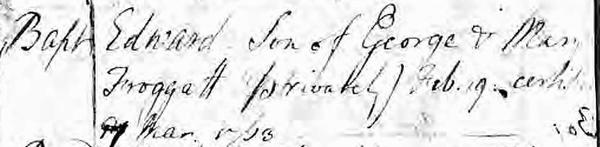 Bapt Edward Son of George & Mary
Froggatt (privately) Feb. 19. certif
Mar.